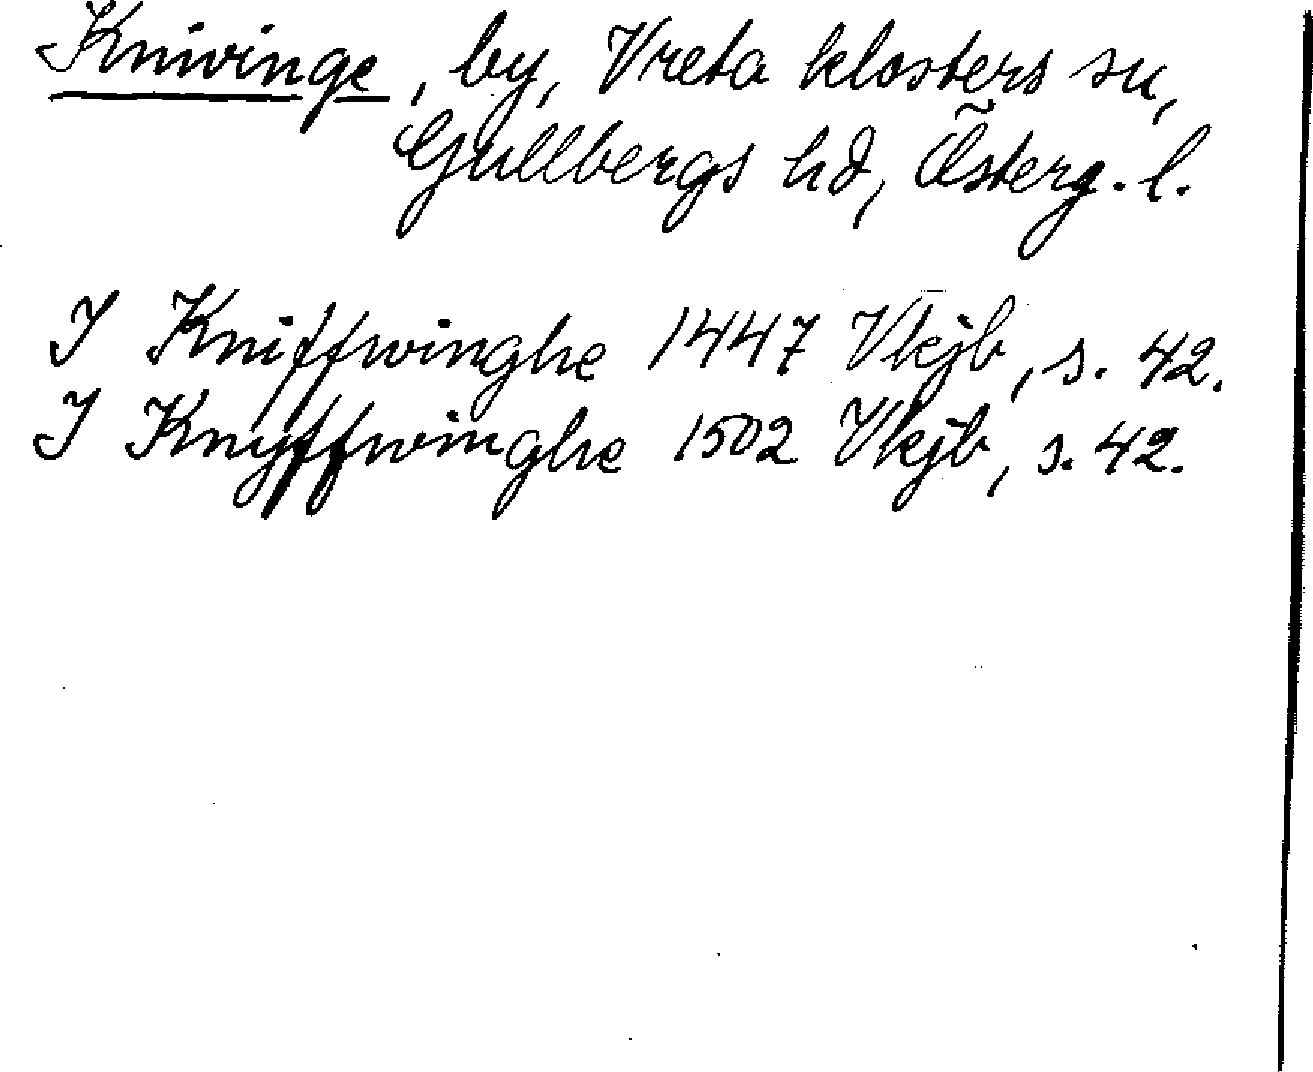 Knivinge, by, Vreta klosters sn,
Gullbergs hd, Österg. l.
I Kniffwinghe 1447 Vkjb, s. 42.
I Knyffwinghe 1502 Vkjb, s. 42.